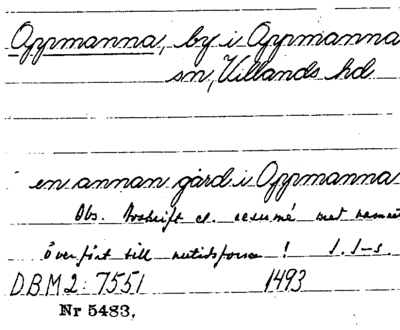 Oppmanna, by i Oppmanna
sn, Villands hd
en annan gård i Oppmanna
Obs. Avskrift el. resumé med namnet
överfört till nutidsform! I. I-s.
DBM2: 7551 1493
Nr 5483.